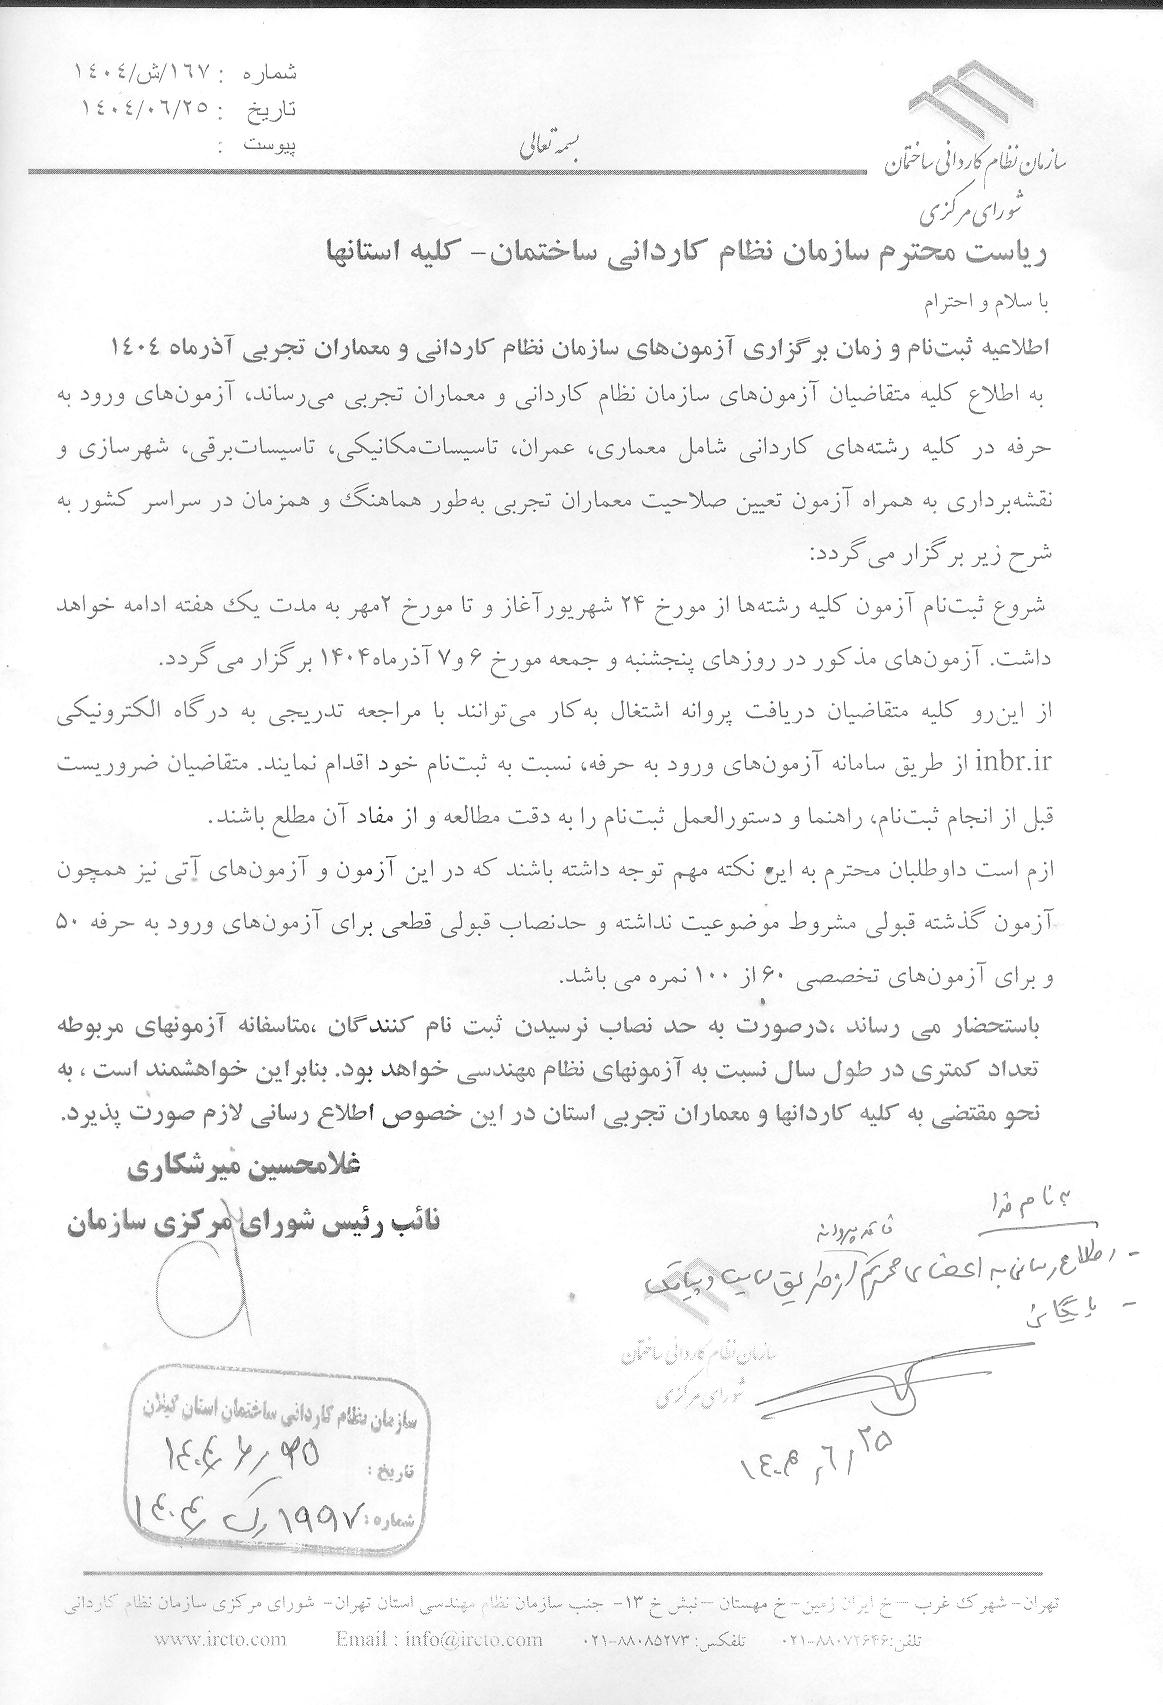 شماره : ۱۶۷/ش/۱۴۰۴
تاریخ : ۱۴۰۴/۰۶/۲۵
پیوست :
بسمه تعالی
سازمان نظام کاردانی ساختمان
شورای مرکزی
ریاست محترم سازمان نظام کاردانی ساختمان- کلیه استانها
با سلام و احترام
اطلاعیه ثبت‌نام و زمان برگزاری آزمون‌های سازمان نظام کاردانی و معماران تجربی آذرماه ۱۴۰۴
به اطلاع کلیه متقاضیان آزمون‌های سازمان نظام کاردانی و معماران تجربی می‌رساند، آزمون‌های ورود به
حرفه در کلیه رشته‌های کاردانی شامل معماری، عمران، تاسیسات‌مکانیکی، تاسیسات‌برقی، شهرسازی و
نقشه‌برداری به همراه آزمون تعیین صلاحیت معماران تجربی به‌طور هماهنگ و همزمان در سراسر کشور به
شرح زیر برگزار می‌گردد:
شروع ثبت‌نام آزمون کلیه رشته‌ها از مورخ ۲۴ شهریورآغاز و تا مورخ ۲مهر به مدت یک هفته ادامه خواهد
داشت. آزمون‌های مذکور در روزهای پنجشنبه و جمعه مورخ ۶ و۷ آذرماه۱۴۰۴ برگزار می‌گردد.
از این‌رو کلیه متقاضیان دریافت پروانه اشتغال به‌کار می‌توانند با مراجعه تدریجی به درگاه الکترونیکی
inbr.ir از طریق سامانه آزمون‌های ورود به حرفه، نسبت به ثبت‌نام خود اقدام نمایند. متقاضیان ضروریست
قبل از انجام ثبت‌نام، راهنما و دستورالعمل ثبت‌نام را به دقت مطالعه و از مفاد آن مطلع باشند.
ازم است داوطلبان محترم به این نکته مهم توجه داشته باشند که در این آزمون و آزمون‌های آتی نیز همچون
آزمون گذشته قبولی مشروط موضوعیت نداشته و حدنصاب قبولی قطعی برای آزمون‌های ورود به حرفه ۵۰
و برای آزمون‌های تخصصی ۶۰ از ۱۰۰ نمره می باشد.
باستحضار می رساند ،درصورت به حد نصاب نرسیدن ثبت نام کنندگان ،متاسفانه آزمونهای مربوطه
تعداد کمتری در طول سال نسبت به آزمونهای نظام مهندسی خواهد بود. بنابراین خواهشمند است ، به
نحو مقتضی به کلیه کاردانها و معماران تجربی استان در این خصوص اطلاع رسانی لازم صورت پذیرد.
غلامحسین میرشکاری
نائب رئیس شورای مرکزی سازمان
به نام خدا
فاقد پروانه
- اطلاع رسانی به اعضای محترم از طریق سایت و پیامک
- بایگانی
سازمان نظام کاردانی ساختمان
شورای مرکزی
۱۴۰۴/۶/۲۵
سازمان نظام کاردانی ساختمان استان گیلان
تاریخ : ۱۴۰۴/۶/۲۵
شماره : ۱۹۹۷/ک/۱۴۰۴
تهران- شهرک غرب –خ ایران زمین-خ مهستان –نبش خ ۱۳- جنب سازمان نظام مهندسی استان تهران- شورای مرکزی سازمان نظام کاردانی
تلفن:۸۸۰۷۲۶۴۶-۰۲۱ تلفکس: ۸۸۰۸۵۲۷۳-۰۲۱ Email : info@ircto.com www.ircto.com